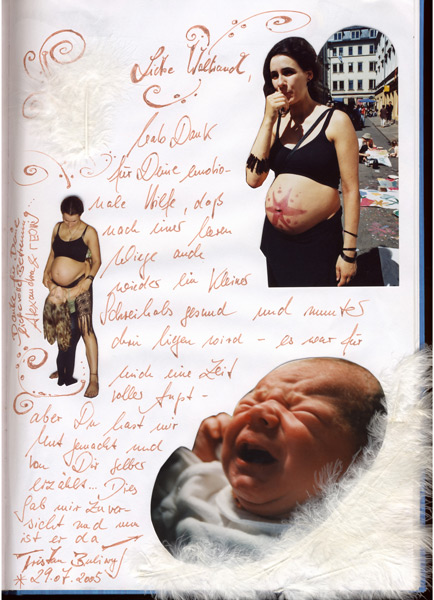 Liebe Waltraud,
hab Dank
für Deine emotio-
nale Hilfe, daß
nach einer leeren
Wiege auch
wieder ein kleiner
Schreihals gesund und munter
drin liegen wird – es war für
mich eine Zeit
voller Angst –
aber Du hast mir
Mut gemacht und
von Dir selber
erzählt... Dies
gab mir Zuver-
sicht und nun
ist er da
Tristan
* 29.07.2005
Danke für Deine
Alexandra &